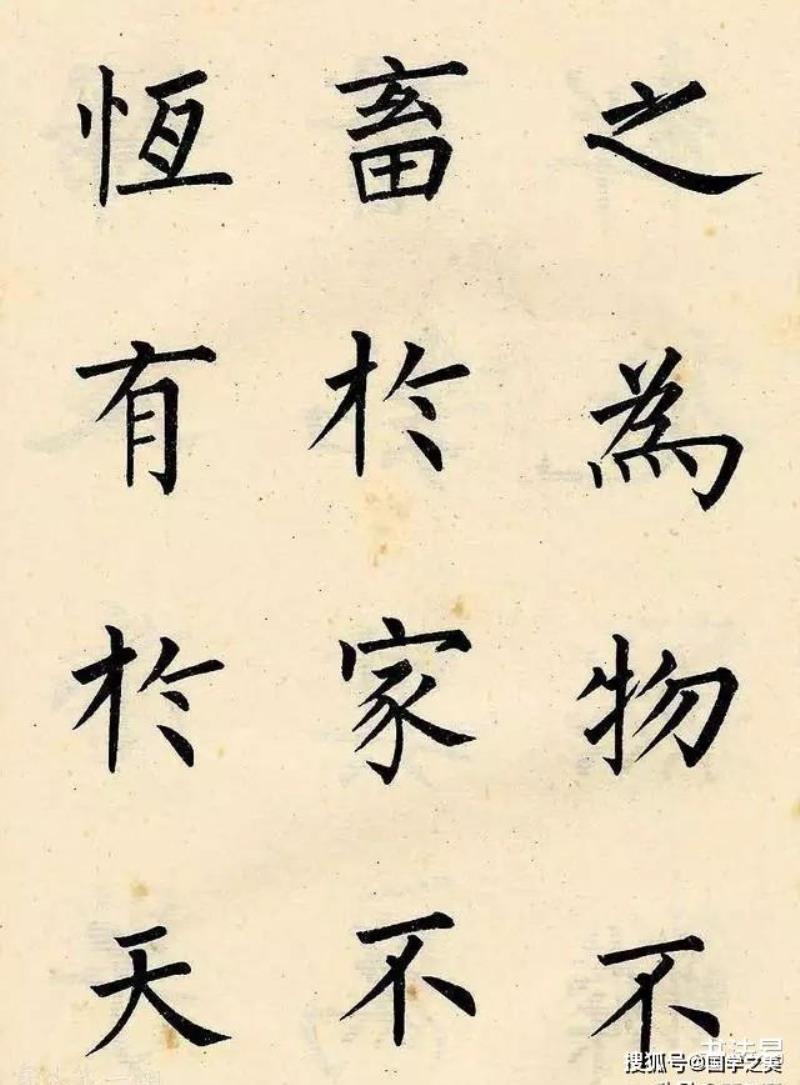 之為物不
畜於家不
恆有於天
搜狐号@国学之美